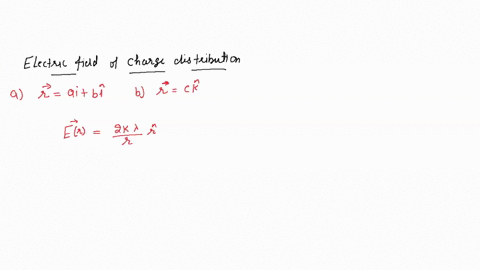 Electric field of charge distribution
a) r⃗ = ai + bî b) r⃗ = ck̂
E⃗(r) = 2Kλ/r r̂